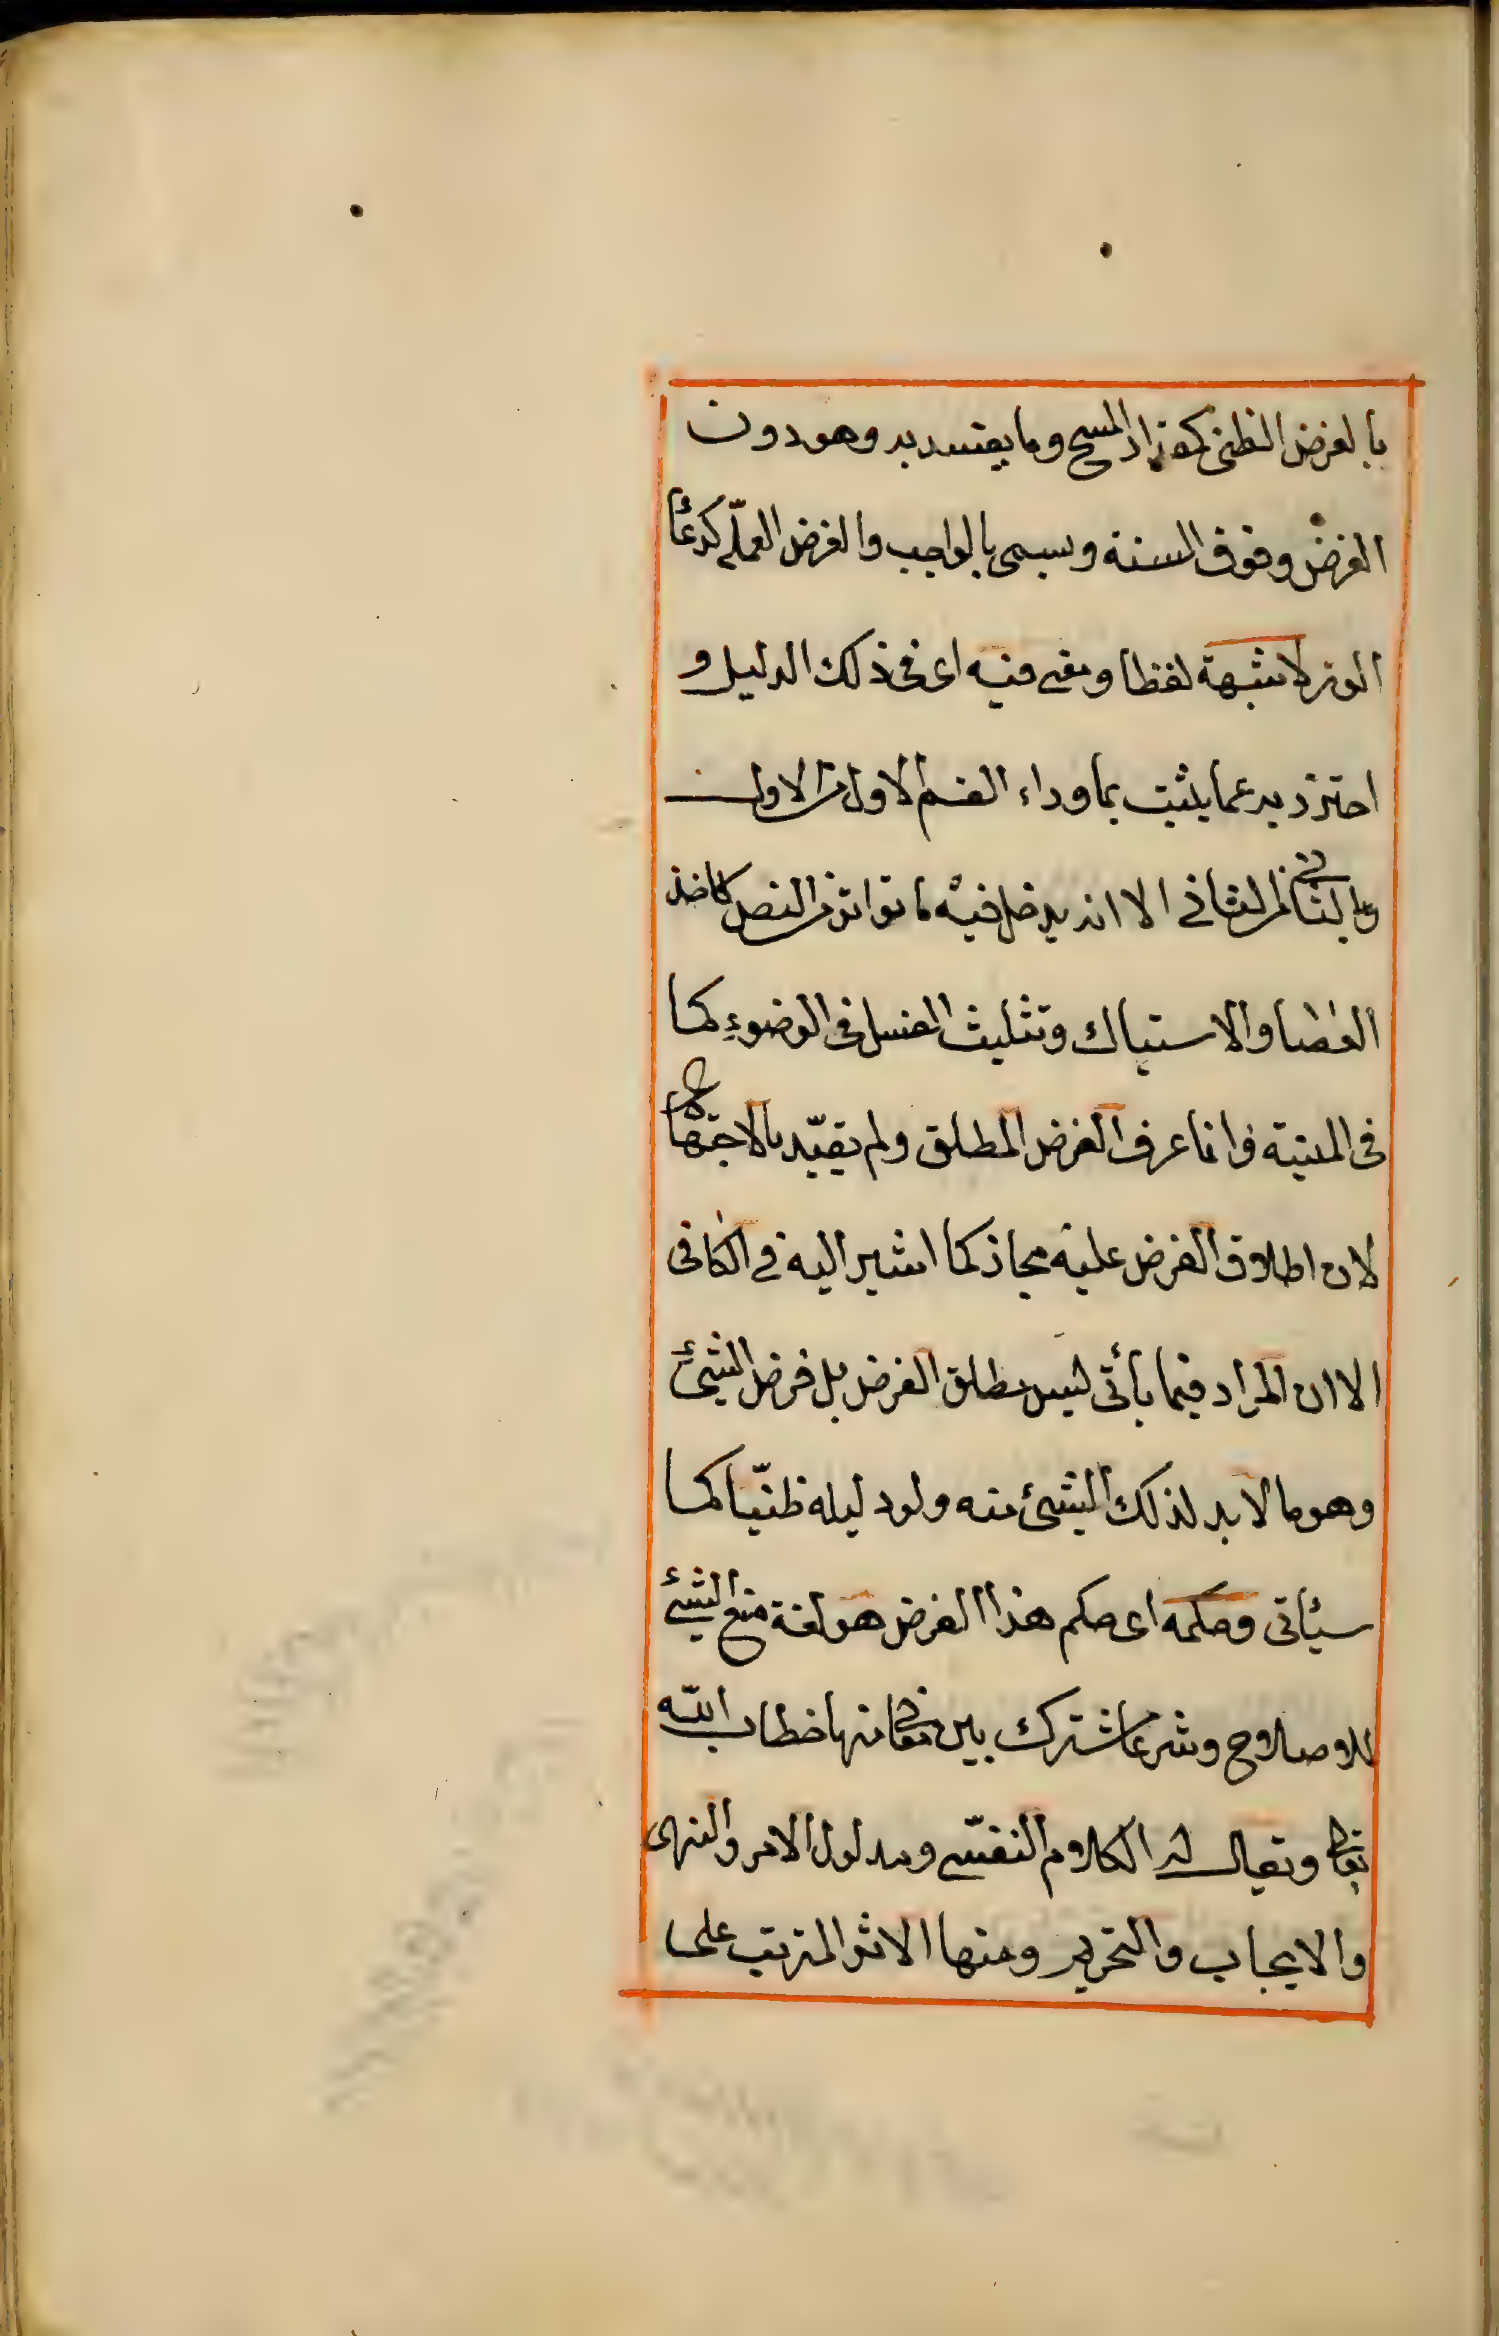 بالفرض الظنى كمقدار المسح وما يفسد به وهو دون
الفرض وفوق السنة ويسمى بالواجب والفرض العملى كدعاء
الوتر لا شبهة لفظا ومعنى فيه اى فى ذلك الدليل و
احترز به عما يثبت بما وراء القسم الاول من الاول
وبالثانى من الثانى الا انه يدخل فيه ما تواتر من النص كاخذ
العصا والاستياك وتثليث الغسل فى الوضوء كما
فى المنية وانما عرف الفرض المطلق ولم يقيد بالاجتهاد
لان اطلاق الفرض عليه مجاز كما اشير اليه فى الكافى
الا ان المراد فيما يأتى ليس مطلق الفرض بل فرض الشيئ
وهو ما لا بد لذلك الشيئ منه ولو دليله ظنيّا كما
سيأتى وحكمه اى حكم هذا الفرض هو لغة منع الشيئ
للاصلاح وشرعا مشترك بين معان منها خطاب الله
تعالى ويقال له الكلام النفسى ومدلول الامر والنهى
والايجاب والتحريم ومنها الاثر المترتب على